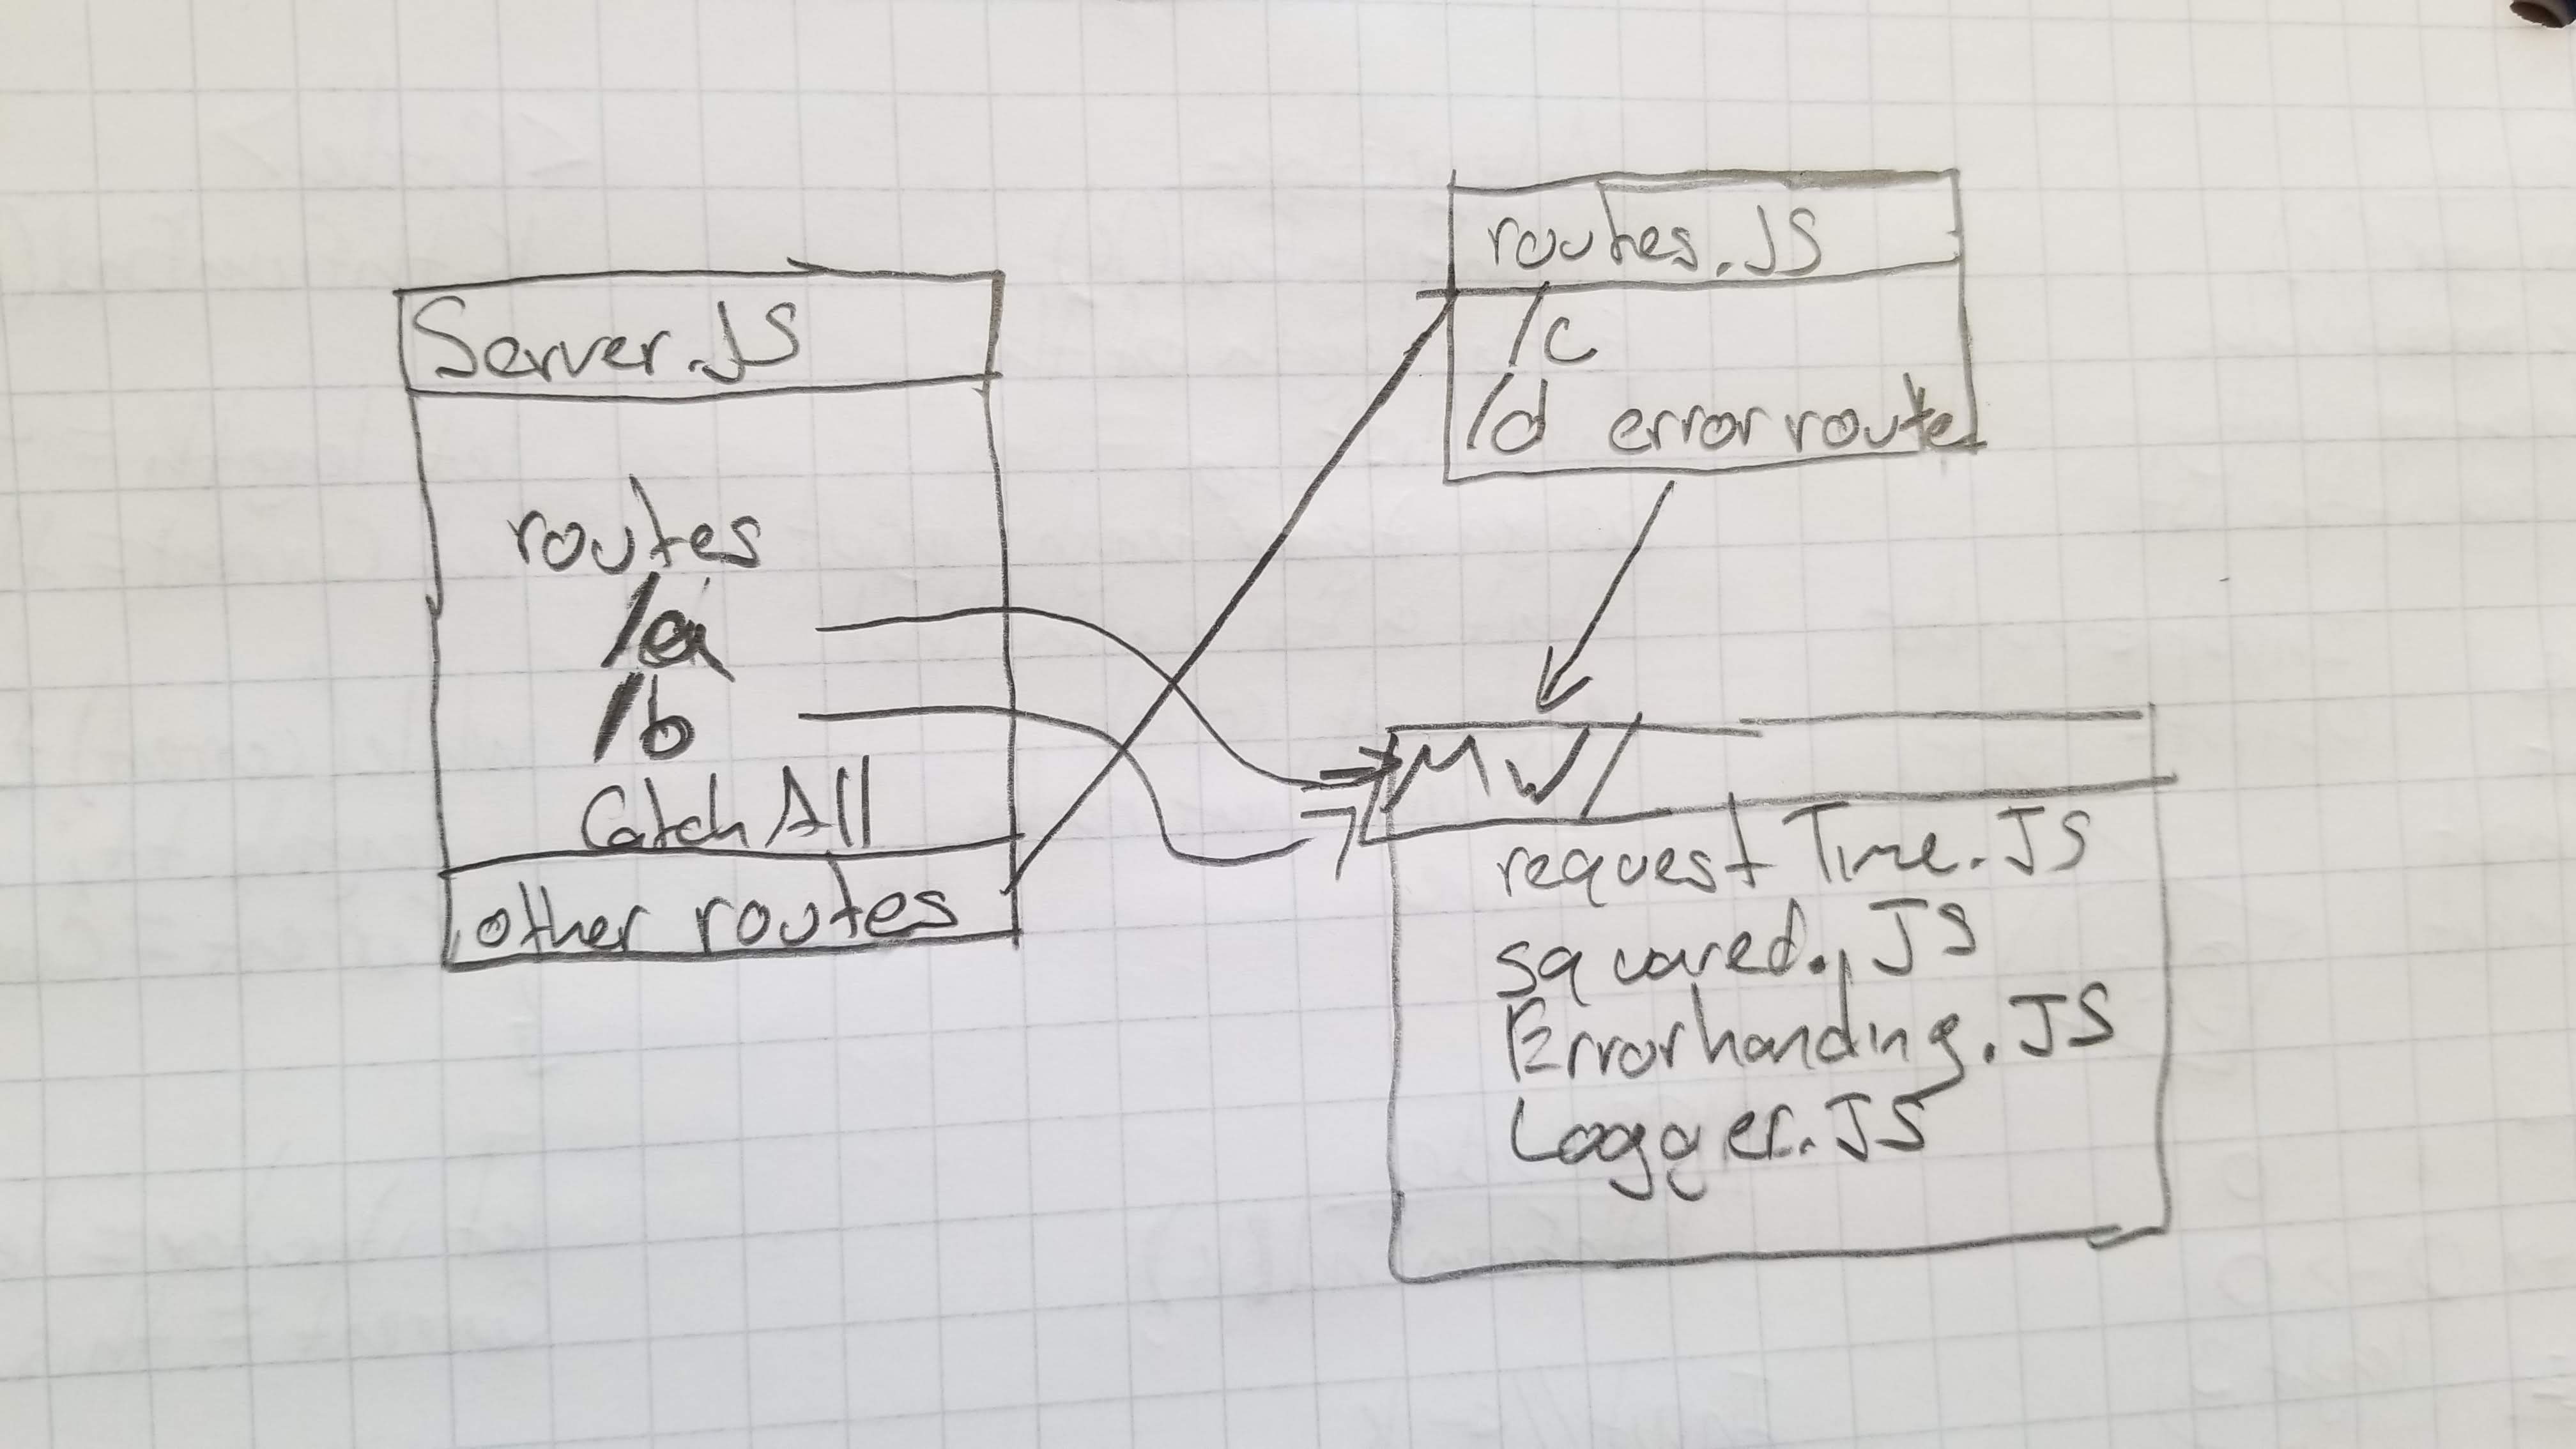 Server.JS
routes
/a
/b
Catch All
other routes
routes.JS
/c
/d error route
MW
request Time.JS
squared.JS
Errorhanding.JS
Logger.JS